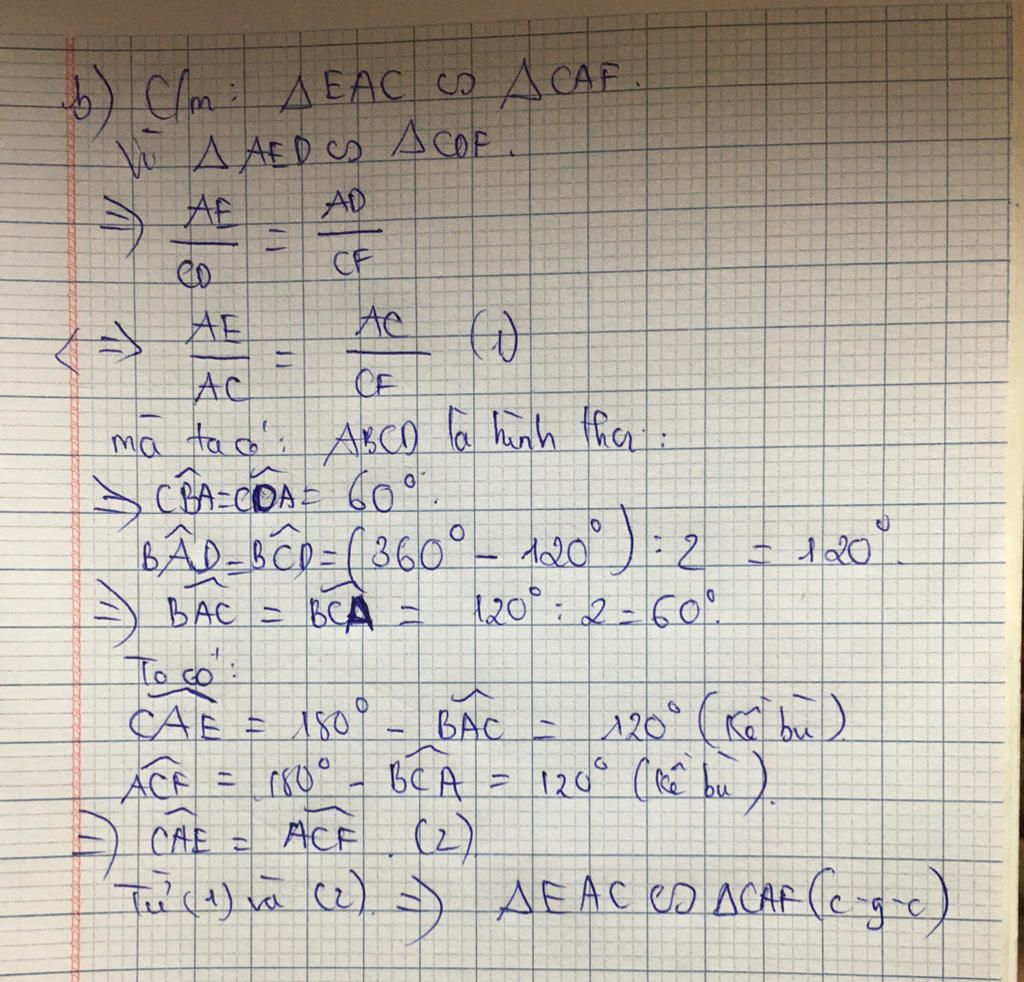 b) C/m: ΔEAC ∽ ΔCAF.
Vì ΔAED ∽ ΔCDF.
⇒ AE/CD = AD/CF
<⇒ AE/AC = AC/CF (1)
mà ta có: ABCD là hình thoi:
⇒ CBA = CDA = 60°.
BAD = BCD = (360° - 120°) : 2 = 120°.
⇒ BAC = BCA = 120° : 2 = 60°.
Ta có:
CAE = 180° - BAC = 120° (Kề bù)
ACF = 180° - BCA = 120° (Kề bù).
⇒ CAE = ACF. (2)
Từ (1) và (2). ⇒ ΔEAC ∽ ΔCAF (c-g-c)